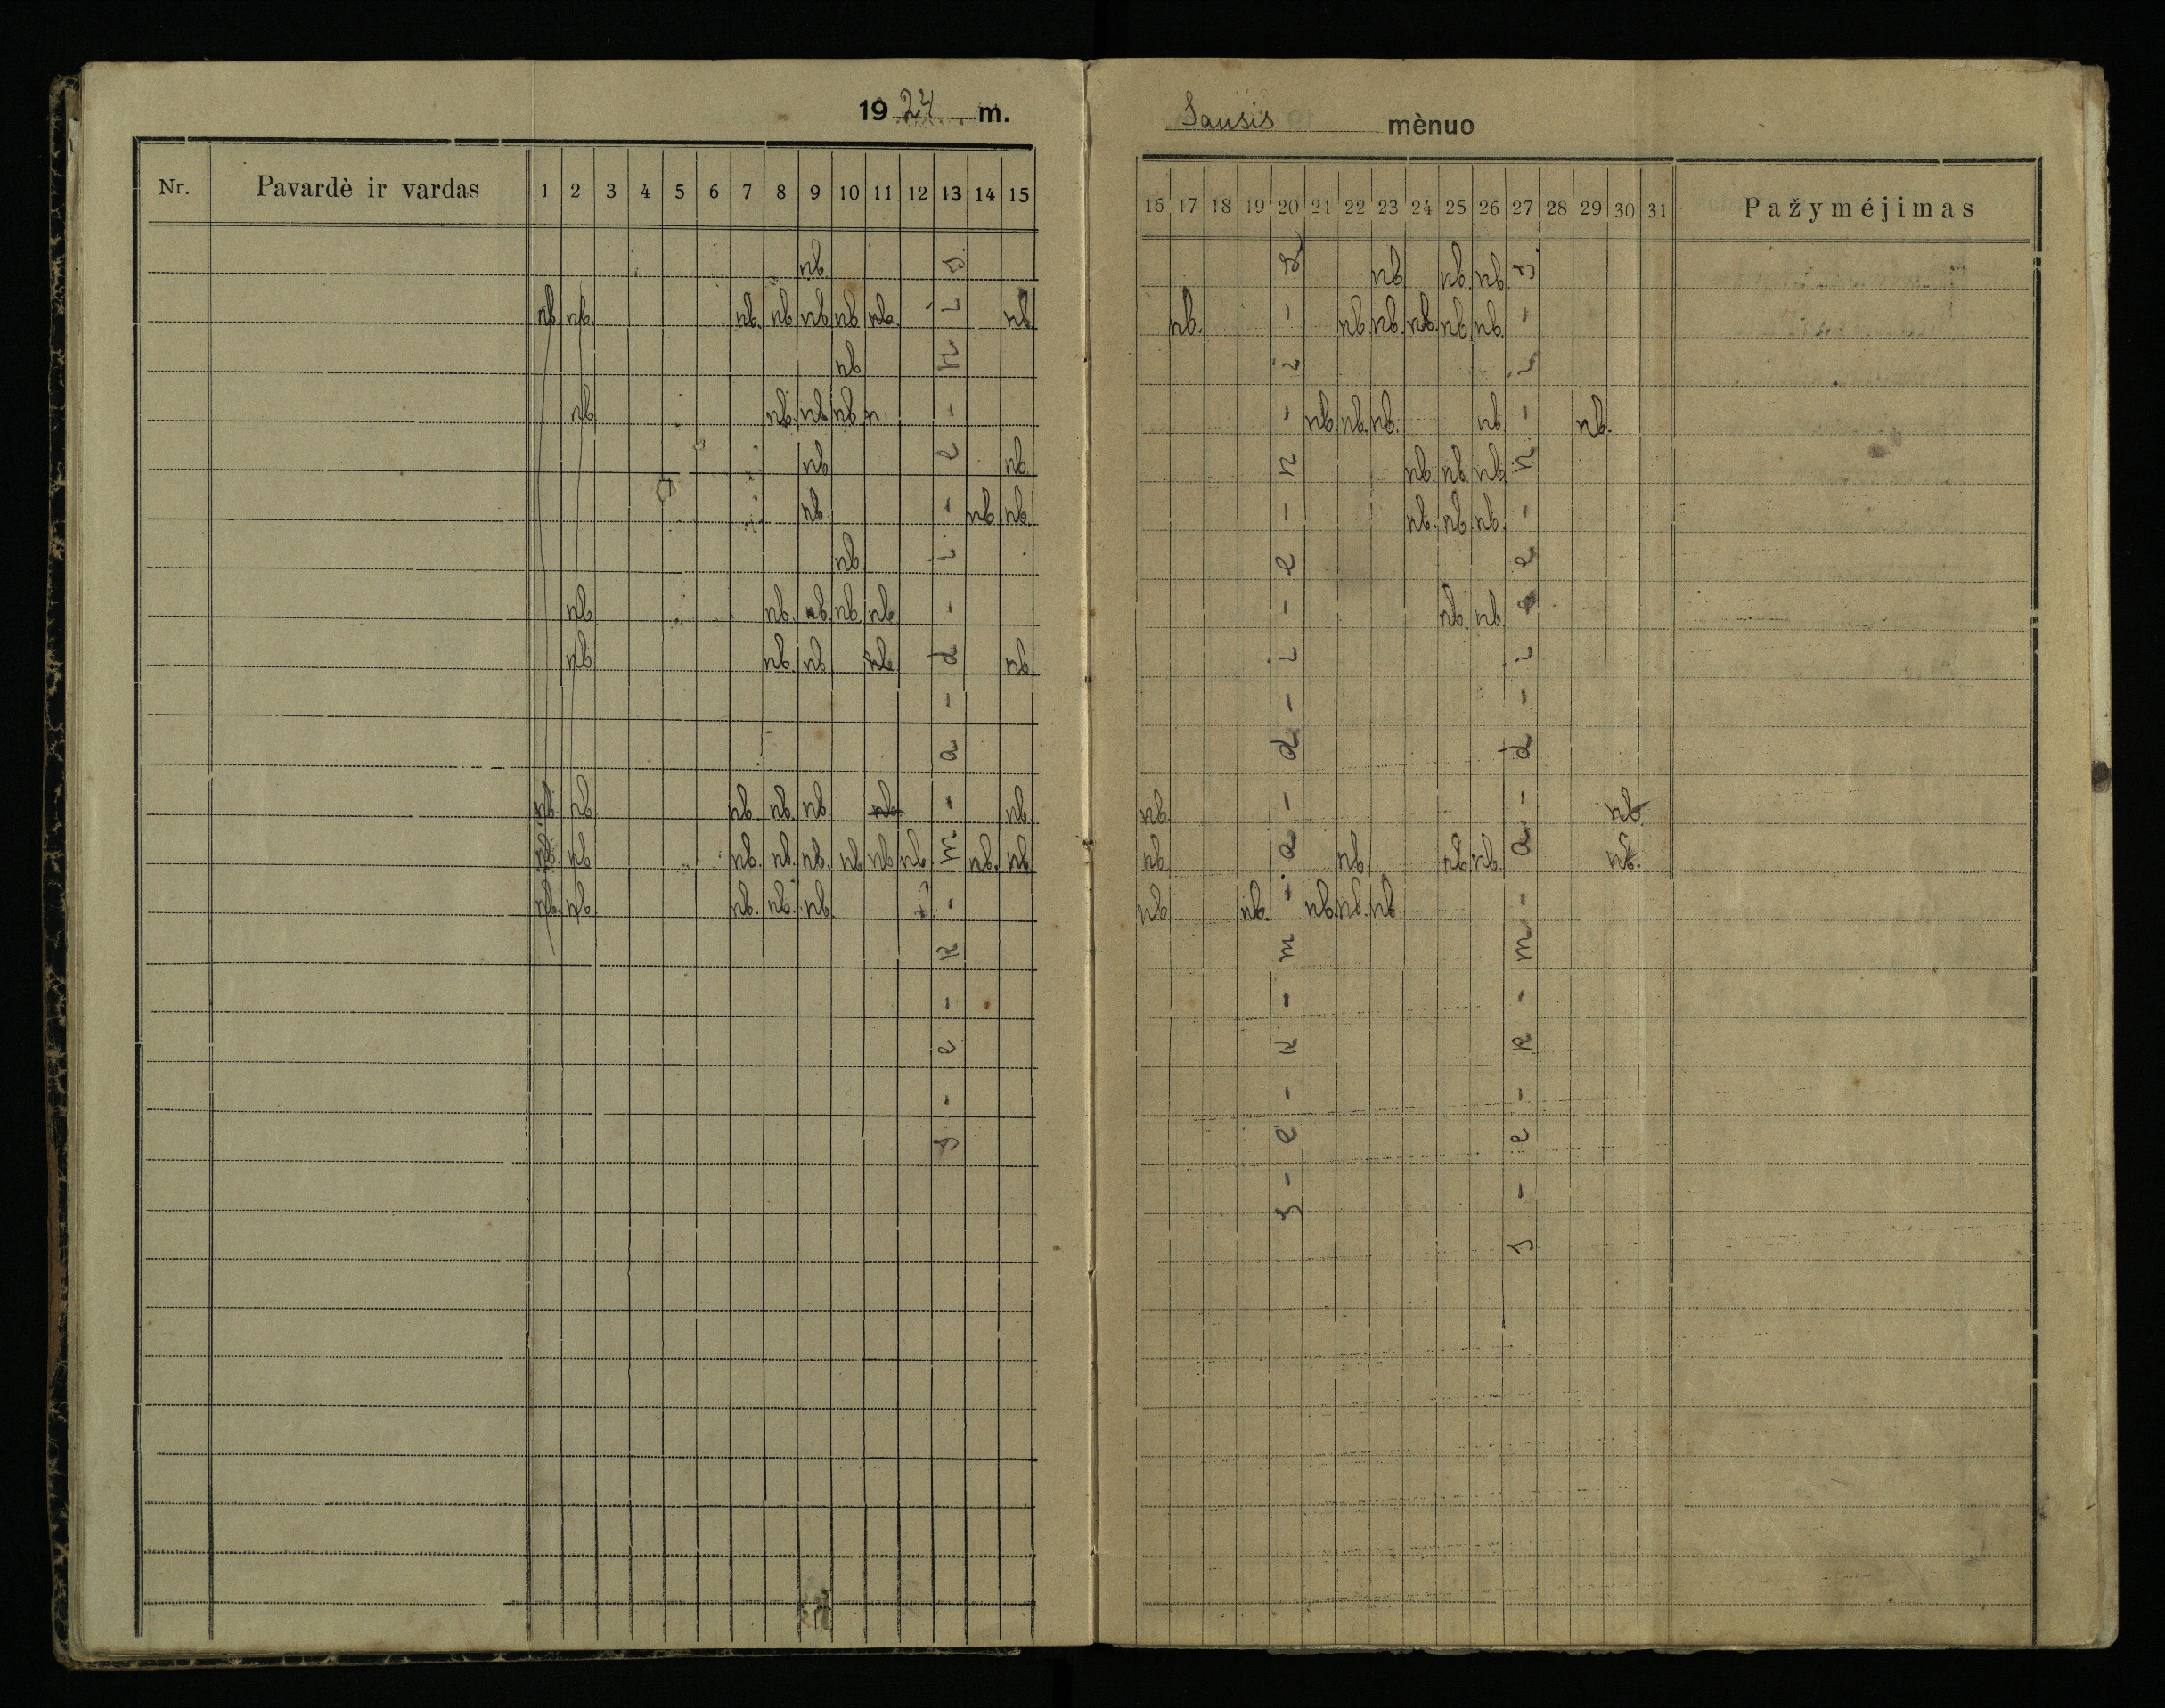 1924 m.
Sausis mėnuo
Nr. Pavardė ir vardas 1 2 3 4 5 6 7 8 9 10 11 12 13 14 15
16 17 18 19 20 21 22 23 24 25 26 27 28 29 30 31 Pažymėjimas
nb. nb nb. nb.
nb nb. nb. nb nb nb nb. nb nb. nb nb. nb. nb nb.
nb
nb nb. nb nb n nb. nb. nb. nb nb.
nb nb. nb. nb. nb
nb. nb nb. nb. nb nb.
nb
nb nb. nb. nb nb nb. nb.
nb nb. nb nb nb
nb. nb nb nb. nb nb nb. nb. nb
nb. nb nb. nb. nb. nb nb nb. nb. nb nb. nb nb nb. nb.
nb. nb. nb. nb. nb. nb nb. nb. nb. nb
s-e-k-m-a-d-i-e-nis
s-e-k-m-a-d-i-e-n-i-s
s-e-k-m-a-d-i-e-n-i-s